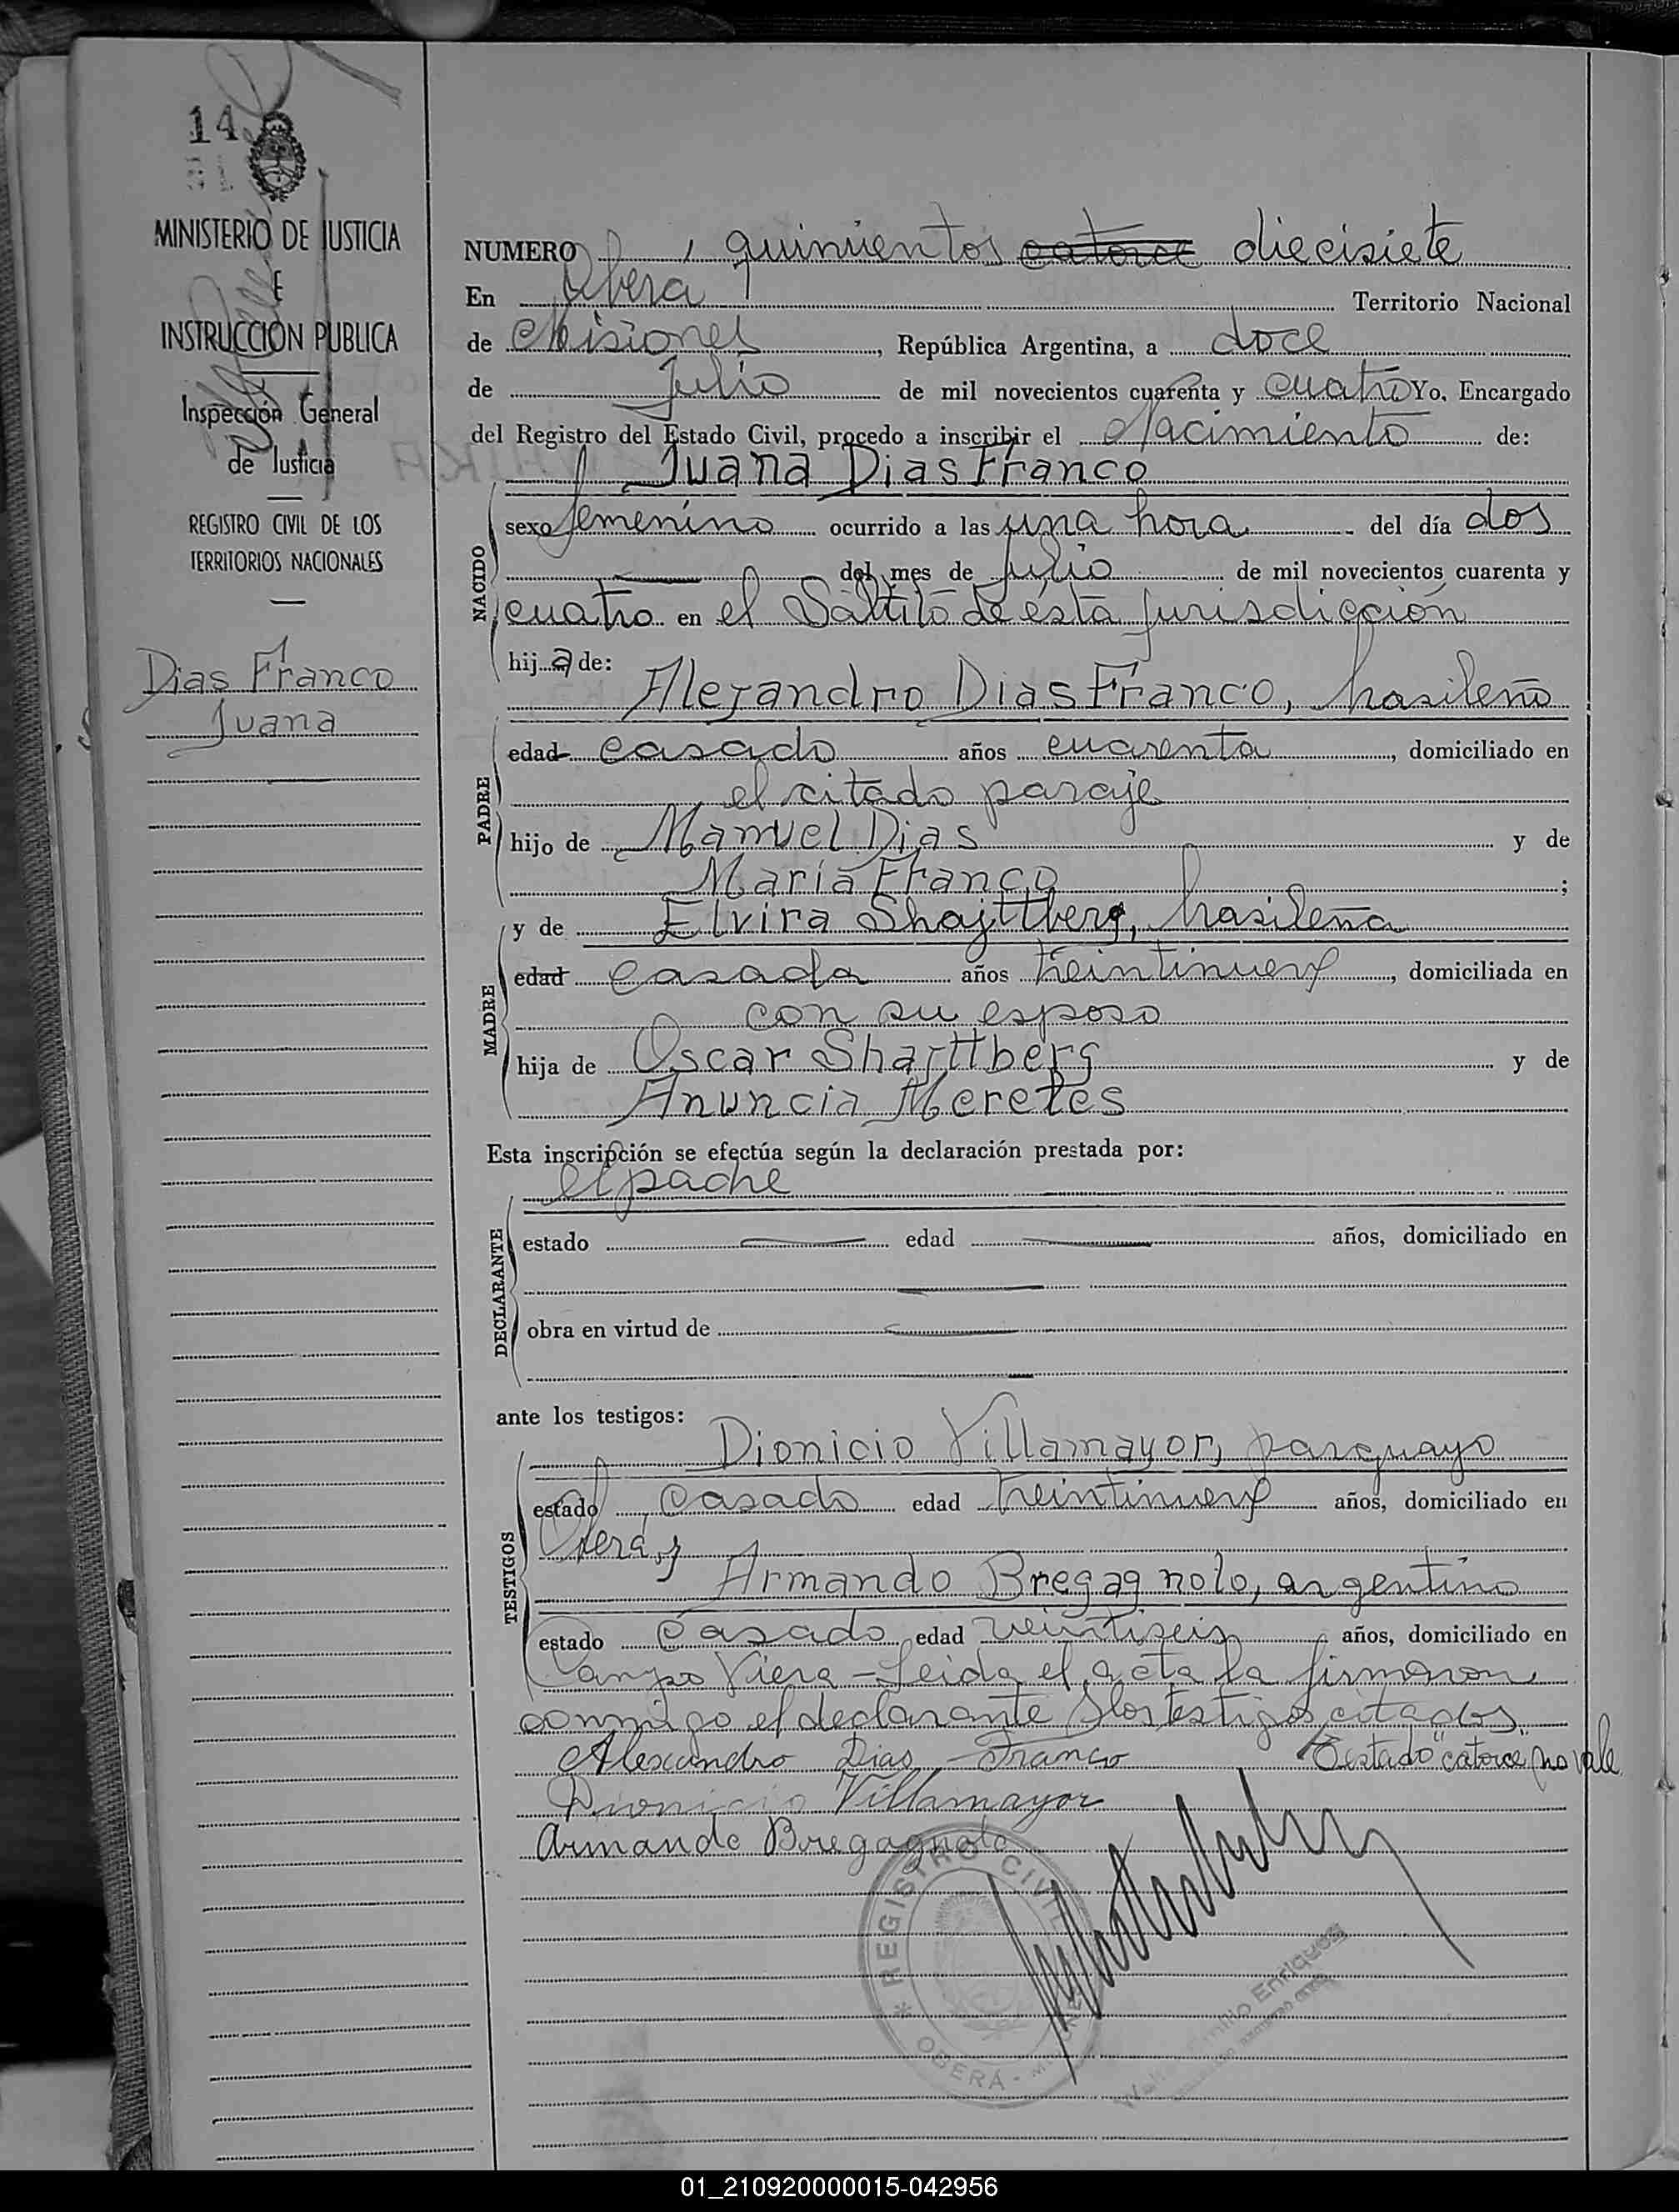 14
MINISTERIO DE JUSTICIA
E
INSTRUCCION PUBLICA
Inspección General
de Justicia
REGISTRO CIVIL DE LOS
TERRITORIOS NACIONALES
Dias Franco
Juana
NUMERO quinientos catorce diecisiete
En Obera Territorio Nacional
de Misiones, República Argentina, a doce
de Julio de mil novecientos cuarenta y cuatro Yo, Encargado
del Registro del Estado Civil, procedo a inscribir el Nacimiento de:
Juana Dias Franco
NACIDO
sexo femenino ocurrido a las una hora del día dos
del mes de julio de mil novecientos cuarenta y
cuatro en el Saltito de ésta jurisdicción
hija de:
Alejandro Dias Franco, brasileño
PADRE
edad casado años cuarenta, domiciliado en
el citado paraje
hijo de Manuel Dias y de
María Franco;
y de Elvira Shajttberg, brasileña
MADRE
edad casada años treintinueve, domiciliada en
con su esposo
hija de Oscar Shajttberg y de
Anuncia Meretes
Esta inscripción se efectúa según la declaración prestada por:
el padre
DECLARANTE
estado edad años, domiciliado en
obra en virtud de
ante los testigos:
Dionicio Villamayor, paraguayo
TESTIGOS
estado casado edad treintinueve años, domiciliado en
Oberá, y
Armando Bregagnolo, argentino
estado casado edad veintiseis años, domiciliado en
Campo Viera - Leida el acta la firmaron
conmigo el declarante y los testigos citados.
Alexandro Dias Franco Testado "catorce" no vale
Dionicio Villamayor
Armando Bregagnolo
REGISTRO CIVIL
OBERÁ
Enriquez
01_210920000015-042956